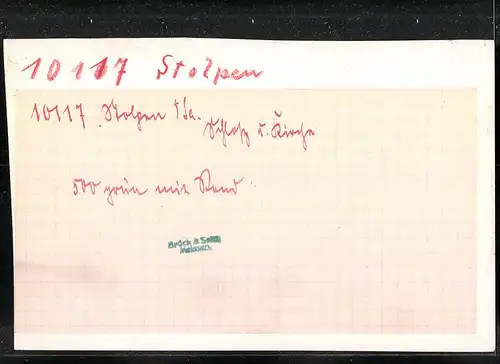 10117 Stolpen
10117 Stolpen i/Sa. Schloß u. Kirche
500 grün mit Rand
Brück & Sohn
Meissen